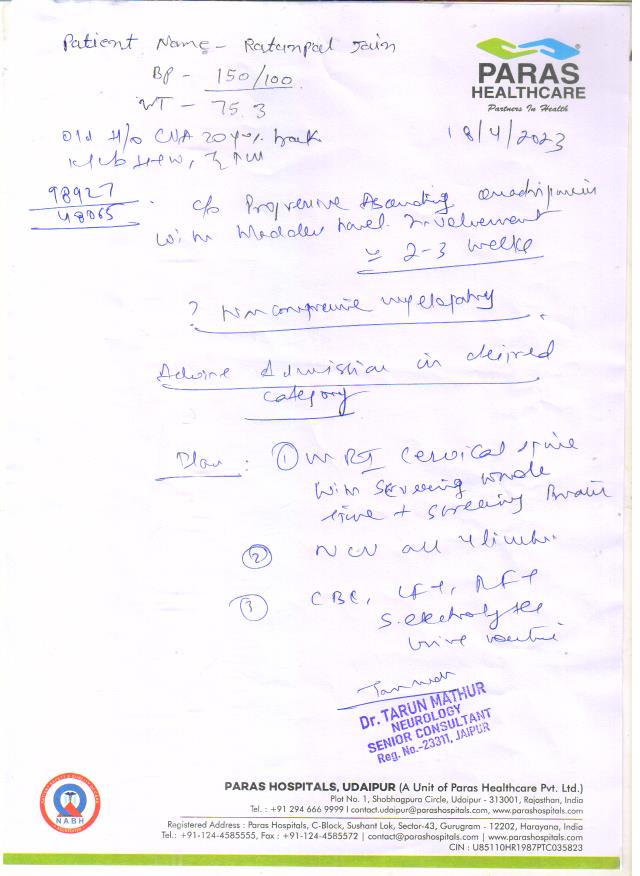 PARAS
HEALTHCARE
Partners In Health
Patient Name - Ratanpal Jain
BP - 150/100
WT - 75.3
18/4/2023
Old H/o CVA 20 yrs back
98927
48065
c/o Progressive Ascending quadriparesis
with Bladder bowel Involvement
2-3 weeks
? Non compressive myelopathy
Advise Admission in desired
category
Plan : ① MRI Cervical spine
with screening whole
spine + screening Brain
② NCV all 4 limbs.
③ CBC, LFT, RFT
S. electrolytes
Urine routine
Dr. TARUN MATHUR
NEUROLOGY
SENIOR CONSULTANT
Reg. No.-23311, JAIPUR
NABH
PARAS HOSPITALS, UDAIPUR (A Unit of Paras Healthcare Pvt. Ltd.)
Plot No. 1, Shobhagpura Circle, Udaipur - 313001, Rajasthan, India
Tel. : +91 294 666 9999 I contact.udaipur@parashospitals.com, www.parashospitals.com
Registered Address : Paras Hospitals, C-Block, Sushant Lok, Sector-43, Gurugram - 12202, Harayana, India
Tel.: +91-124-4585555, Fax : +91-124-4585572 | contact@parashospitals.com | www.parashospitals.com
CIN : U85110HR1987PTC035823